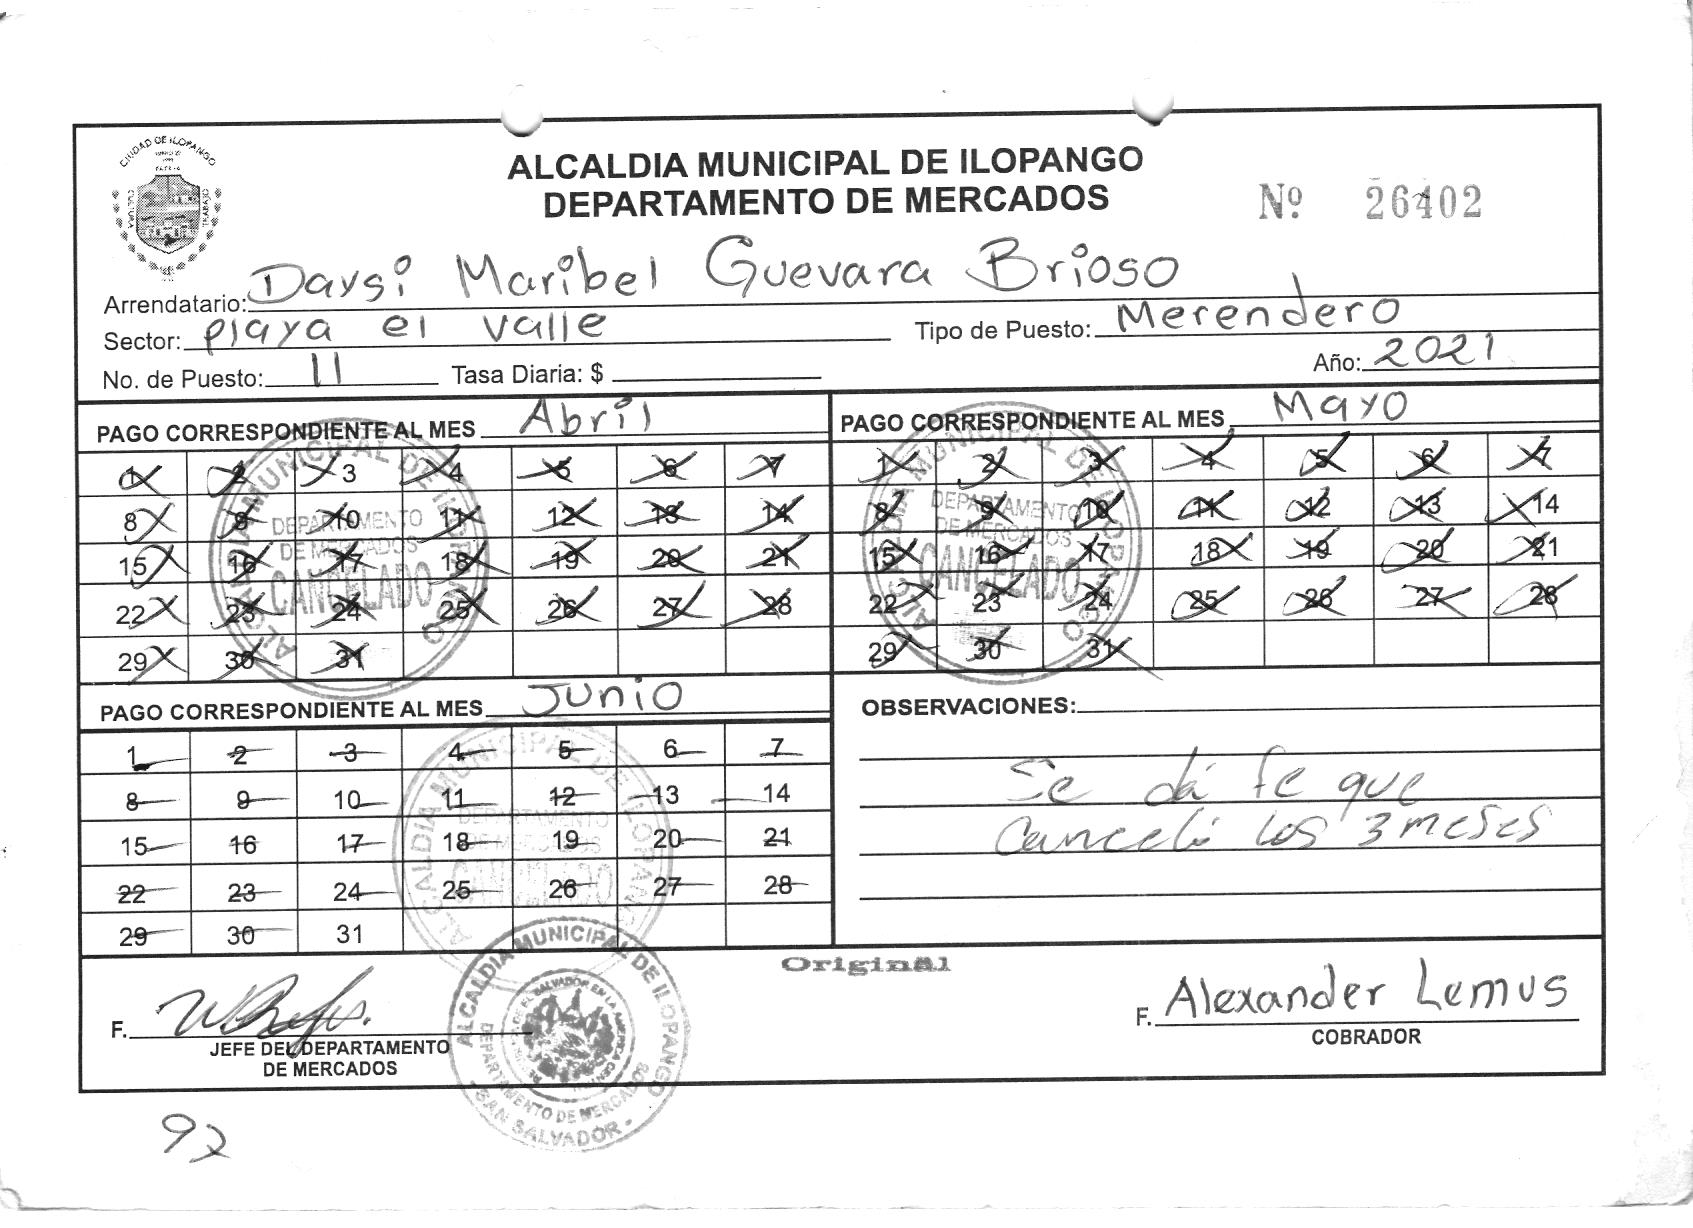 CIUDAD DE ILOPANGO
CULTURA
TRABAJO
ALCALDIA MUNICIPAL DE ILOPANGO
DEPARTAMENTO DE MERCADOS
Nº 26402
Arrendatario: Daysi Maribel Guevara Brioso
Sector: playa el valle Tipo de Puesto: Merendero
No. de Puesto: 11 Tasa Diaria: $ Año: 2021
PAGO CORRESPONDIENTE AL MES Abril
1 2 3 4 5 6 7
8 9 10 11 12 13 14
15 16 17 18 19 20 21
22 23 24 25 26 27 28
29 30 31
ALCALDIA MUNICIPAL DE ILOPANGO
DEPARTAMENTO
DE MERCADOS
CANCELADO
PAGO CORRESPONDIENTE AL MES Mayo
1 2 3 4 5 6 7
8 9 10 11 12 13 14
15 16 17 18 19 20 21
22 23 24 25 26 27 28
29 30 31
ALCALDIA MUNICIPAL DE ILOPANGO
DEPARTAMENTO
DE MERCADOS
CANCELADO
PAGO CORRESPONDIENTE AL MES Junio
1 2 3 4 5 6 7
8 9 10 11 12 13 14
15 16 17 18 19 20 21
22 23 24 25 26 27 28
29 30 31
ALCALDIA MUNICIPAL DE ILOPANGO
DEPARTAMENTO
DE MERCADOS
CANCELADO
OBSERVACIONES:
Se dá fe que
canceló los 3 meses
Original
F.
JEFE DEL DEPARTAMENTO
DE MERCADOS
ALCALDIA MUNICIPAL DE ILOPANGO
DEPARTAMENTO DE MERCADOS
SAN SALVADOR
F. Alexander Lemus
COBRADOR